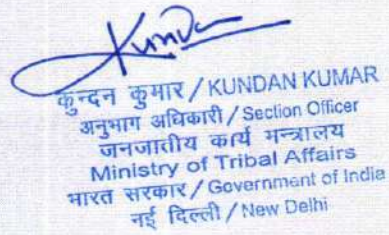 Kundan
कुन्दन कुमार / KUNDAN KUMAR
अनुभाग अधिकारी / Section Officer
जनजातीय कार्य मन्त्रालय
Ministry of Tribal Affairs
भारत सरकार / Government of India
नई दिल्ली / New Delhi